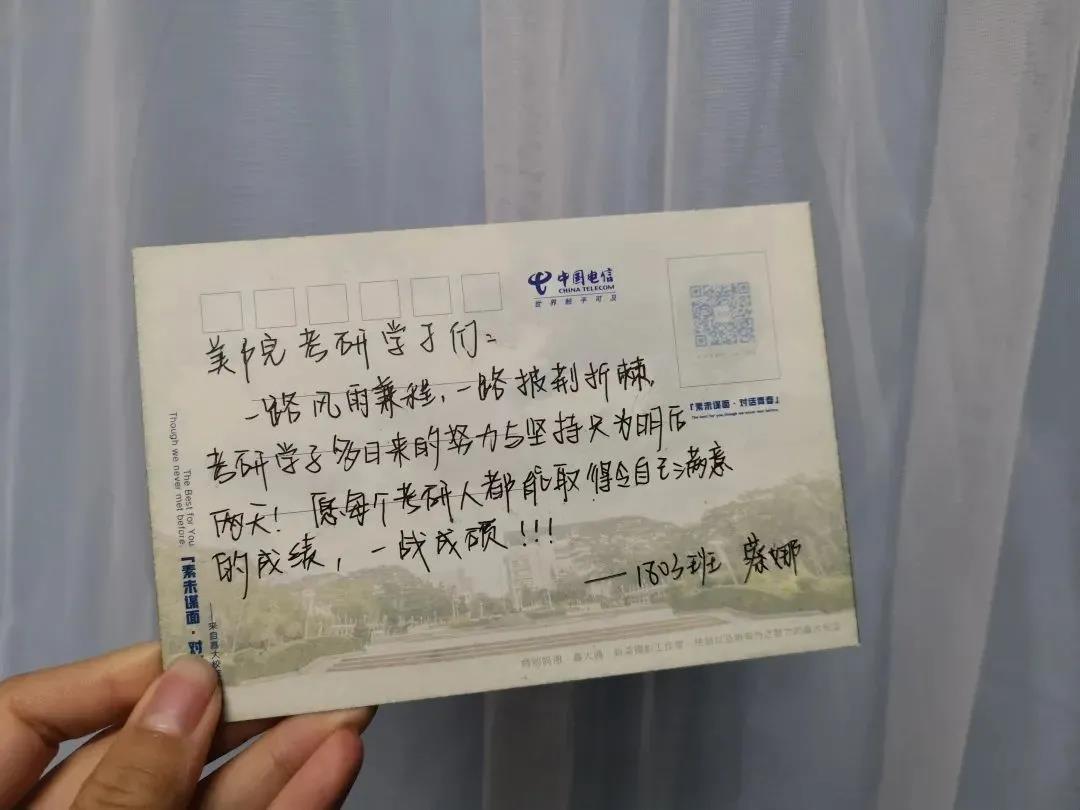 中国电信
CHINA TELECOM
世界触手可及
美院考研学子们：
一路风雨兼程，一路披荆折棘。
考研学子多日来的努力与坚持只为明后
两天！愿每个考研人都能取得令自己满意
的成绩，一战成硕！!!
——1803班 蔡娜
『素未谋面·对话青春』
The best for you, though we never met before.
The Best for You
Though we never met before.
『素未谋面·对
——来自嘉大校